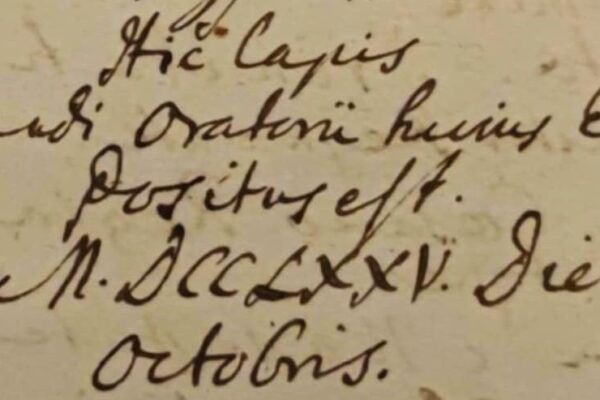 Hic Lapis
Oratorii huius
Positus est.
M. DCCLXXV. Die
Octobris.